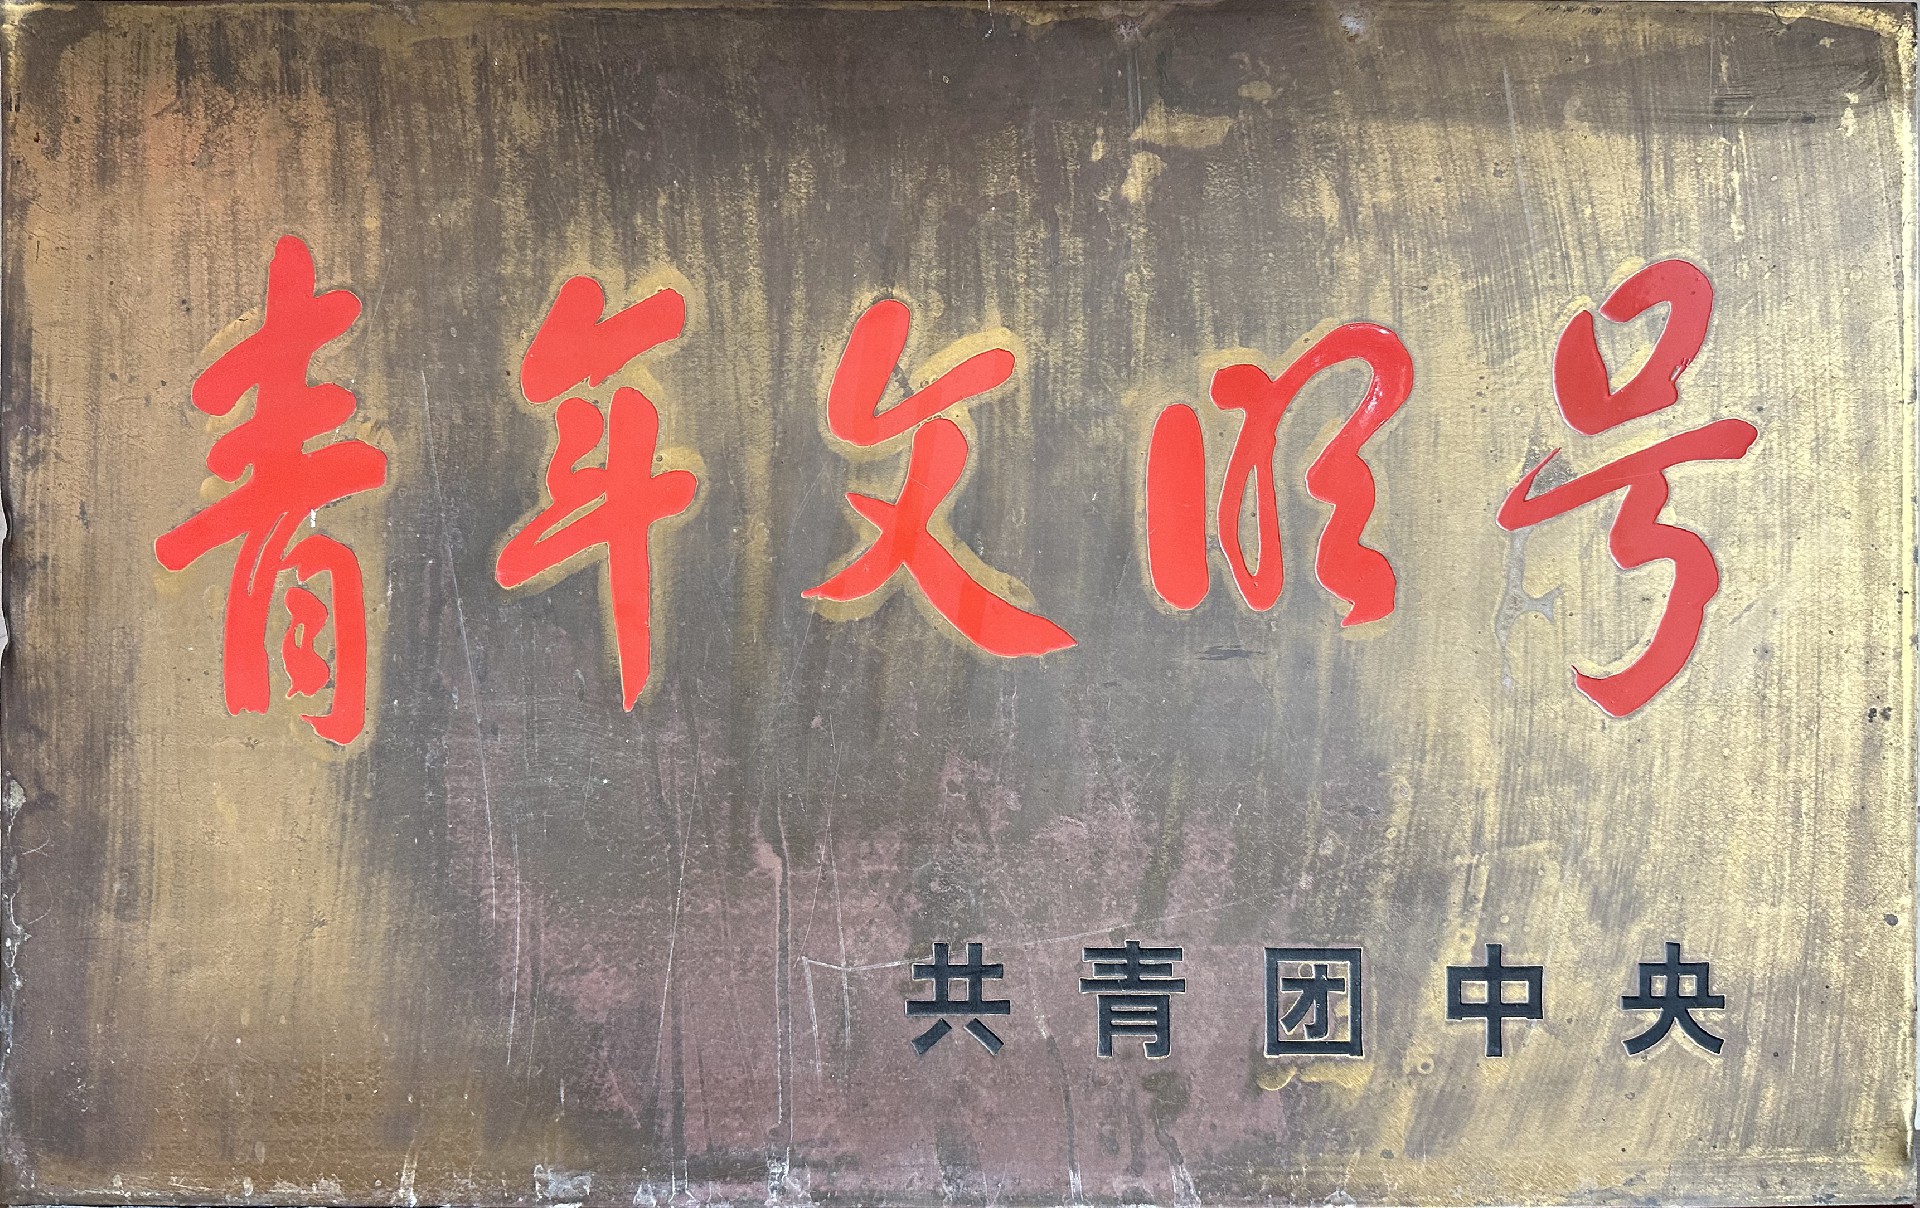 青年文明号
共青团中央